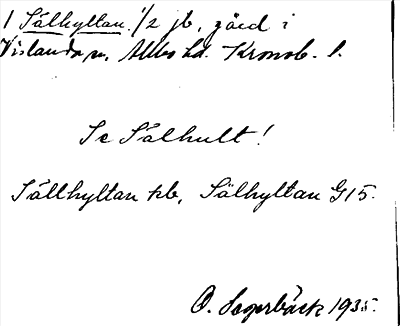 1 Sälhyltan. 1/2 jb, gård i
Vislanda sn, Allbo hd. Kronob. l.
Se Sälhult!
Sällhyltan kb, Sälhyltan G15.
O. Sagerbäck 1935.